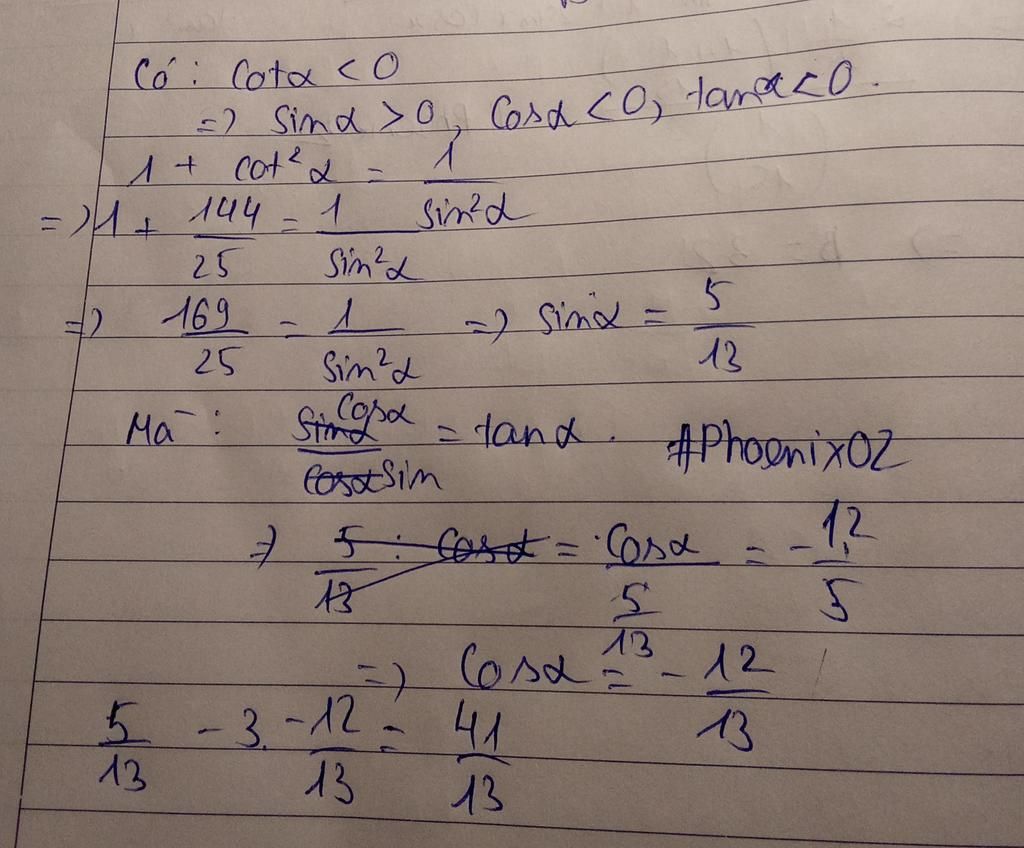 Có: Cotα < 0
=> Sinα > 0, Cosα < 0, tanα < 0.
1 + cot²α = 1/sin²α
=> 1 + 144/25 = 1/sin²α
=> 169/25 = 1/sin²α => sinα = 5/13
Mà: Cosα/Sin = tanα. #Phoenix02
=> Cosα/(5/13) = -12/5
=> Cosα = -12/13
5/13 - 3. -12/13 = 41/13